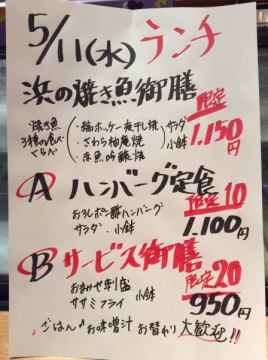 5/11(水) ランチ
浜の焼き魚御膳 限定
焼き魚 3種の食べくらべ (・縞ホッケ一夜干し焼 ・さわら柚庵焼 ・赤魚吟醸焼) サラダ 小鉢 1.150円
A ハンバーグ定食 限定10
おろしポン酢ハンバーグ
サラダ. 小鉢 1.100円
B サービス御膳 限定20
おまかせ刺盛 小鉢
ササミフライ 950円
ごはん♪お味噌汁 お替わり大歓迎!!